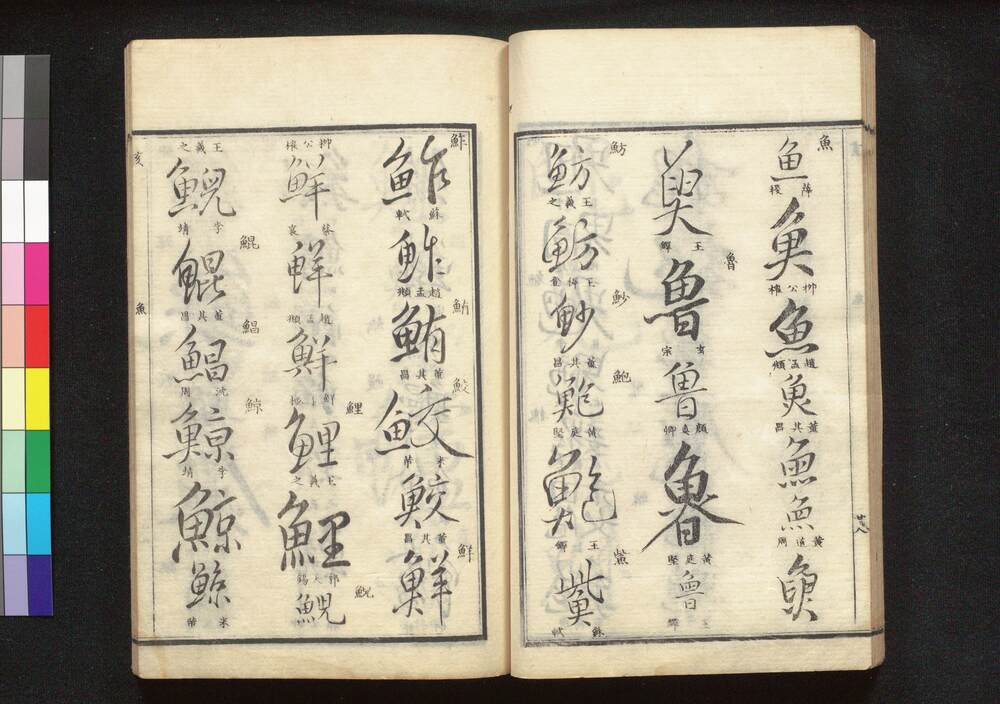 魚
魚
薛稷
魚
柳公權
魚
趙孟頫
魚
董其昌
魚
魚
黃道周
魚
魚
王鐸
魯
魯
玄宗
魯
顏真卿
魯
黃庭堅
魯
王鐸
魴
魴
王羲之
魴
魦
魦
董其昌
鮑
鮑
黃庭堅
鮑
王鐸
鮆
鮆
蘇軾
廿八
鮓
鮓
蘇軾
鮓
趙孟頫
鮪
鮪
董其昌
鮫
鮫
米芾
鮫
董其昌
鮮
鮮
柳公權
鮮
蔡襄
鮮
趙孟頫
鮮
鮮于樞
鯉
鯉
王羲之
鯉
郭天錫
鯢
鯢
王羲之
鯢
李靖
鯤
鯤
董其昌
鯧
鯧
沈周
鯨
鯨
李靖
鯨
鯨
米芾
亥
魚